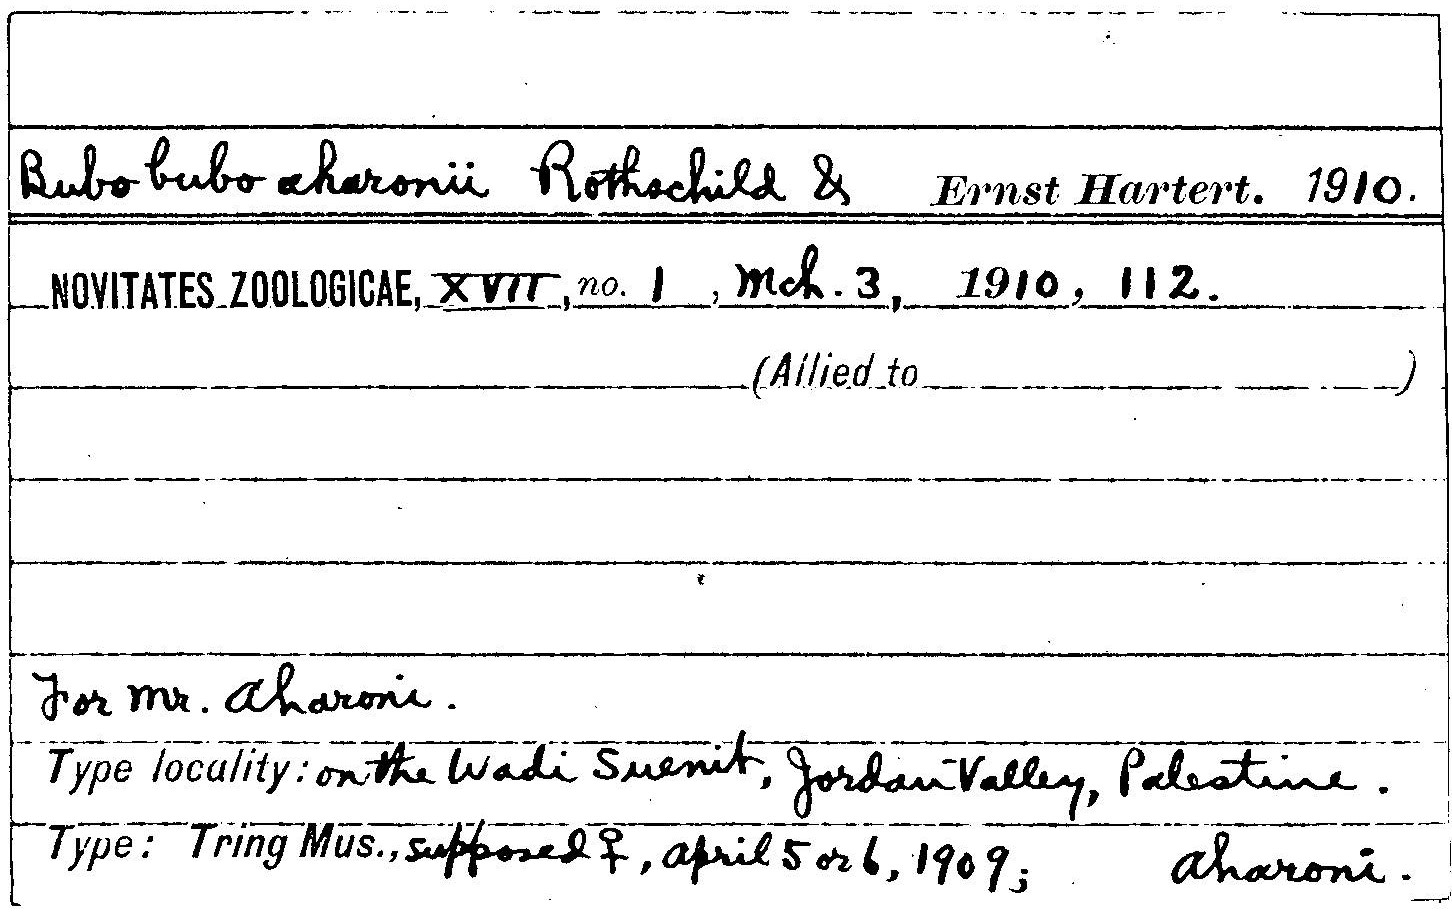 Bubo bubo aharonii Rothschild & Ernst Hartert. 1910.
NOVITATES ZOOLOGICAE, XVII, no. 1, Mch. 3, 1910, 112.
(Allied to )
For Mr. Aharoni.
Type locality: on the Wadi Suenit, Jordan Valley, Palestine.
Type: Tring Mus., supposed ♀, April 5 or 6, 1909; Aharoni.